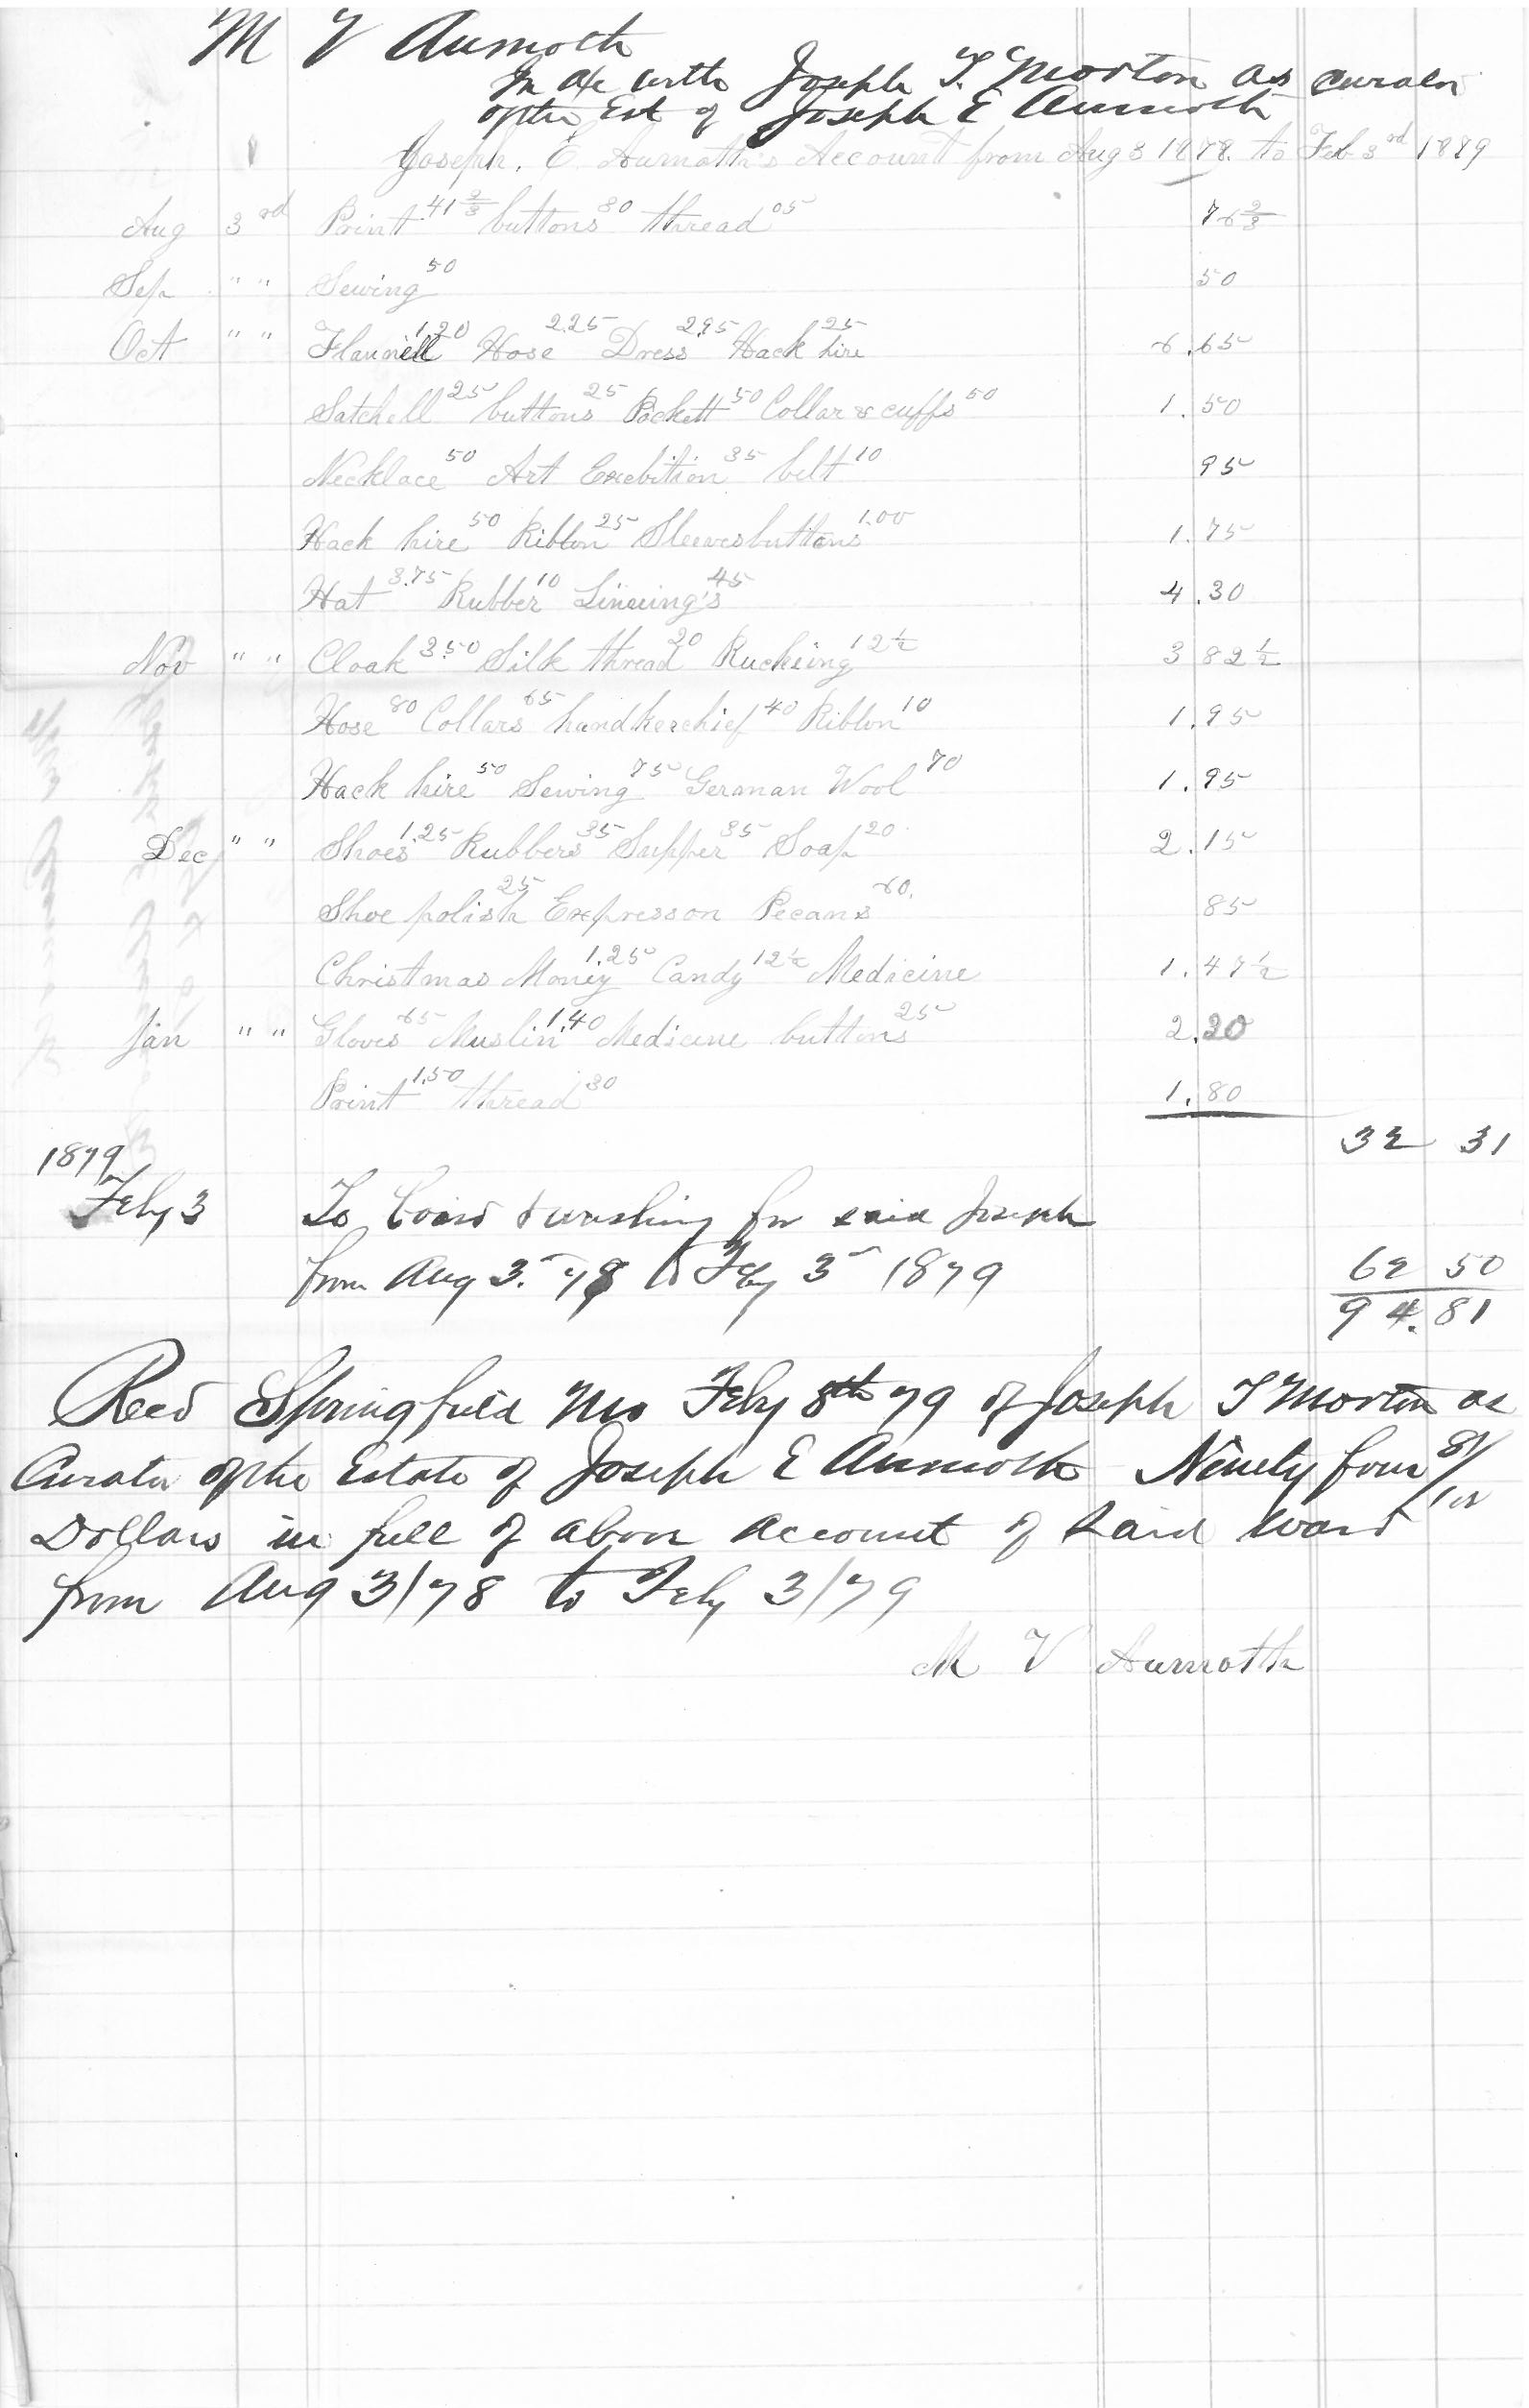 M V Aumoth
In a/c with Joseph T. Morton as curator
of the Est of Joseph E Aumoth
Joseph. E Aumoth's Account from Aug 3 1878. to Feb 3rd 1879
Aug 3rd Print 41 2/3 buttons 30 thread 05 76 2/3
Sep " " Sewing 50 50
Oct " " Flannell 1.20 Hose 2.25 Dress 2.95 Hack hire 25 6.65
Satchell 25 buttons 25 Pockett 50 Collar & cuffs 50 1.50
Necklace 50 Art Exebition 35 belt 10 95
Hack hire 50 Ribbon 25 Sleevesbuttons 1.00 1.75
Hat 3.75 Rubber 10 Lineing's 45 4.30
Nov " " Cloak 3.50 Silk thread 20 Rucheing 12 1/2 3 82 1/2
Hose 80 Collars 65 handkerchief 40 Ribbon 10 1.95
Hack hire 50 Sewing 75 German Wool 70 1.95
Dec " " Shoes 1.25 Rubbers 35 Supper 35 Soap 20 2.15
Shoe polish 25 Expresson Pecans 60. 85
Christmas Money 1.25 Candy 12 1/2 Medicine 1.47 1/2
Jan " " Gloves 65 Muslin 1.40 Medicine buttons 25 2.20
Print 1.50 thread 30 1.80
32 31
1879
Feby 3 To Board & washing for said Joseph
from Aug 3. 78 to Feby 3 1879 62 50
94.81
Recd Springfield Mo Feby 8th 79 of Joseph T Morton as
Curator of the Estate of Joseph E Aumoth Ninety four 81/100
Dollars in full of above account of said ward
from Aug 3/78 to Feby 3/79
M V Aumoth